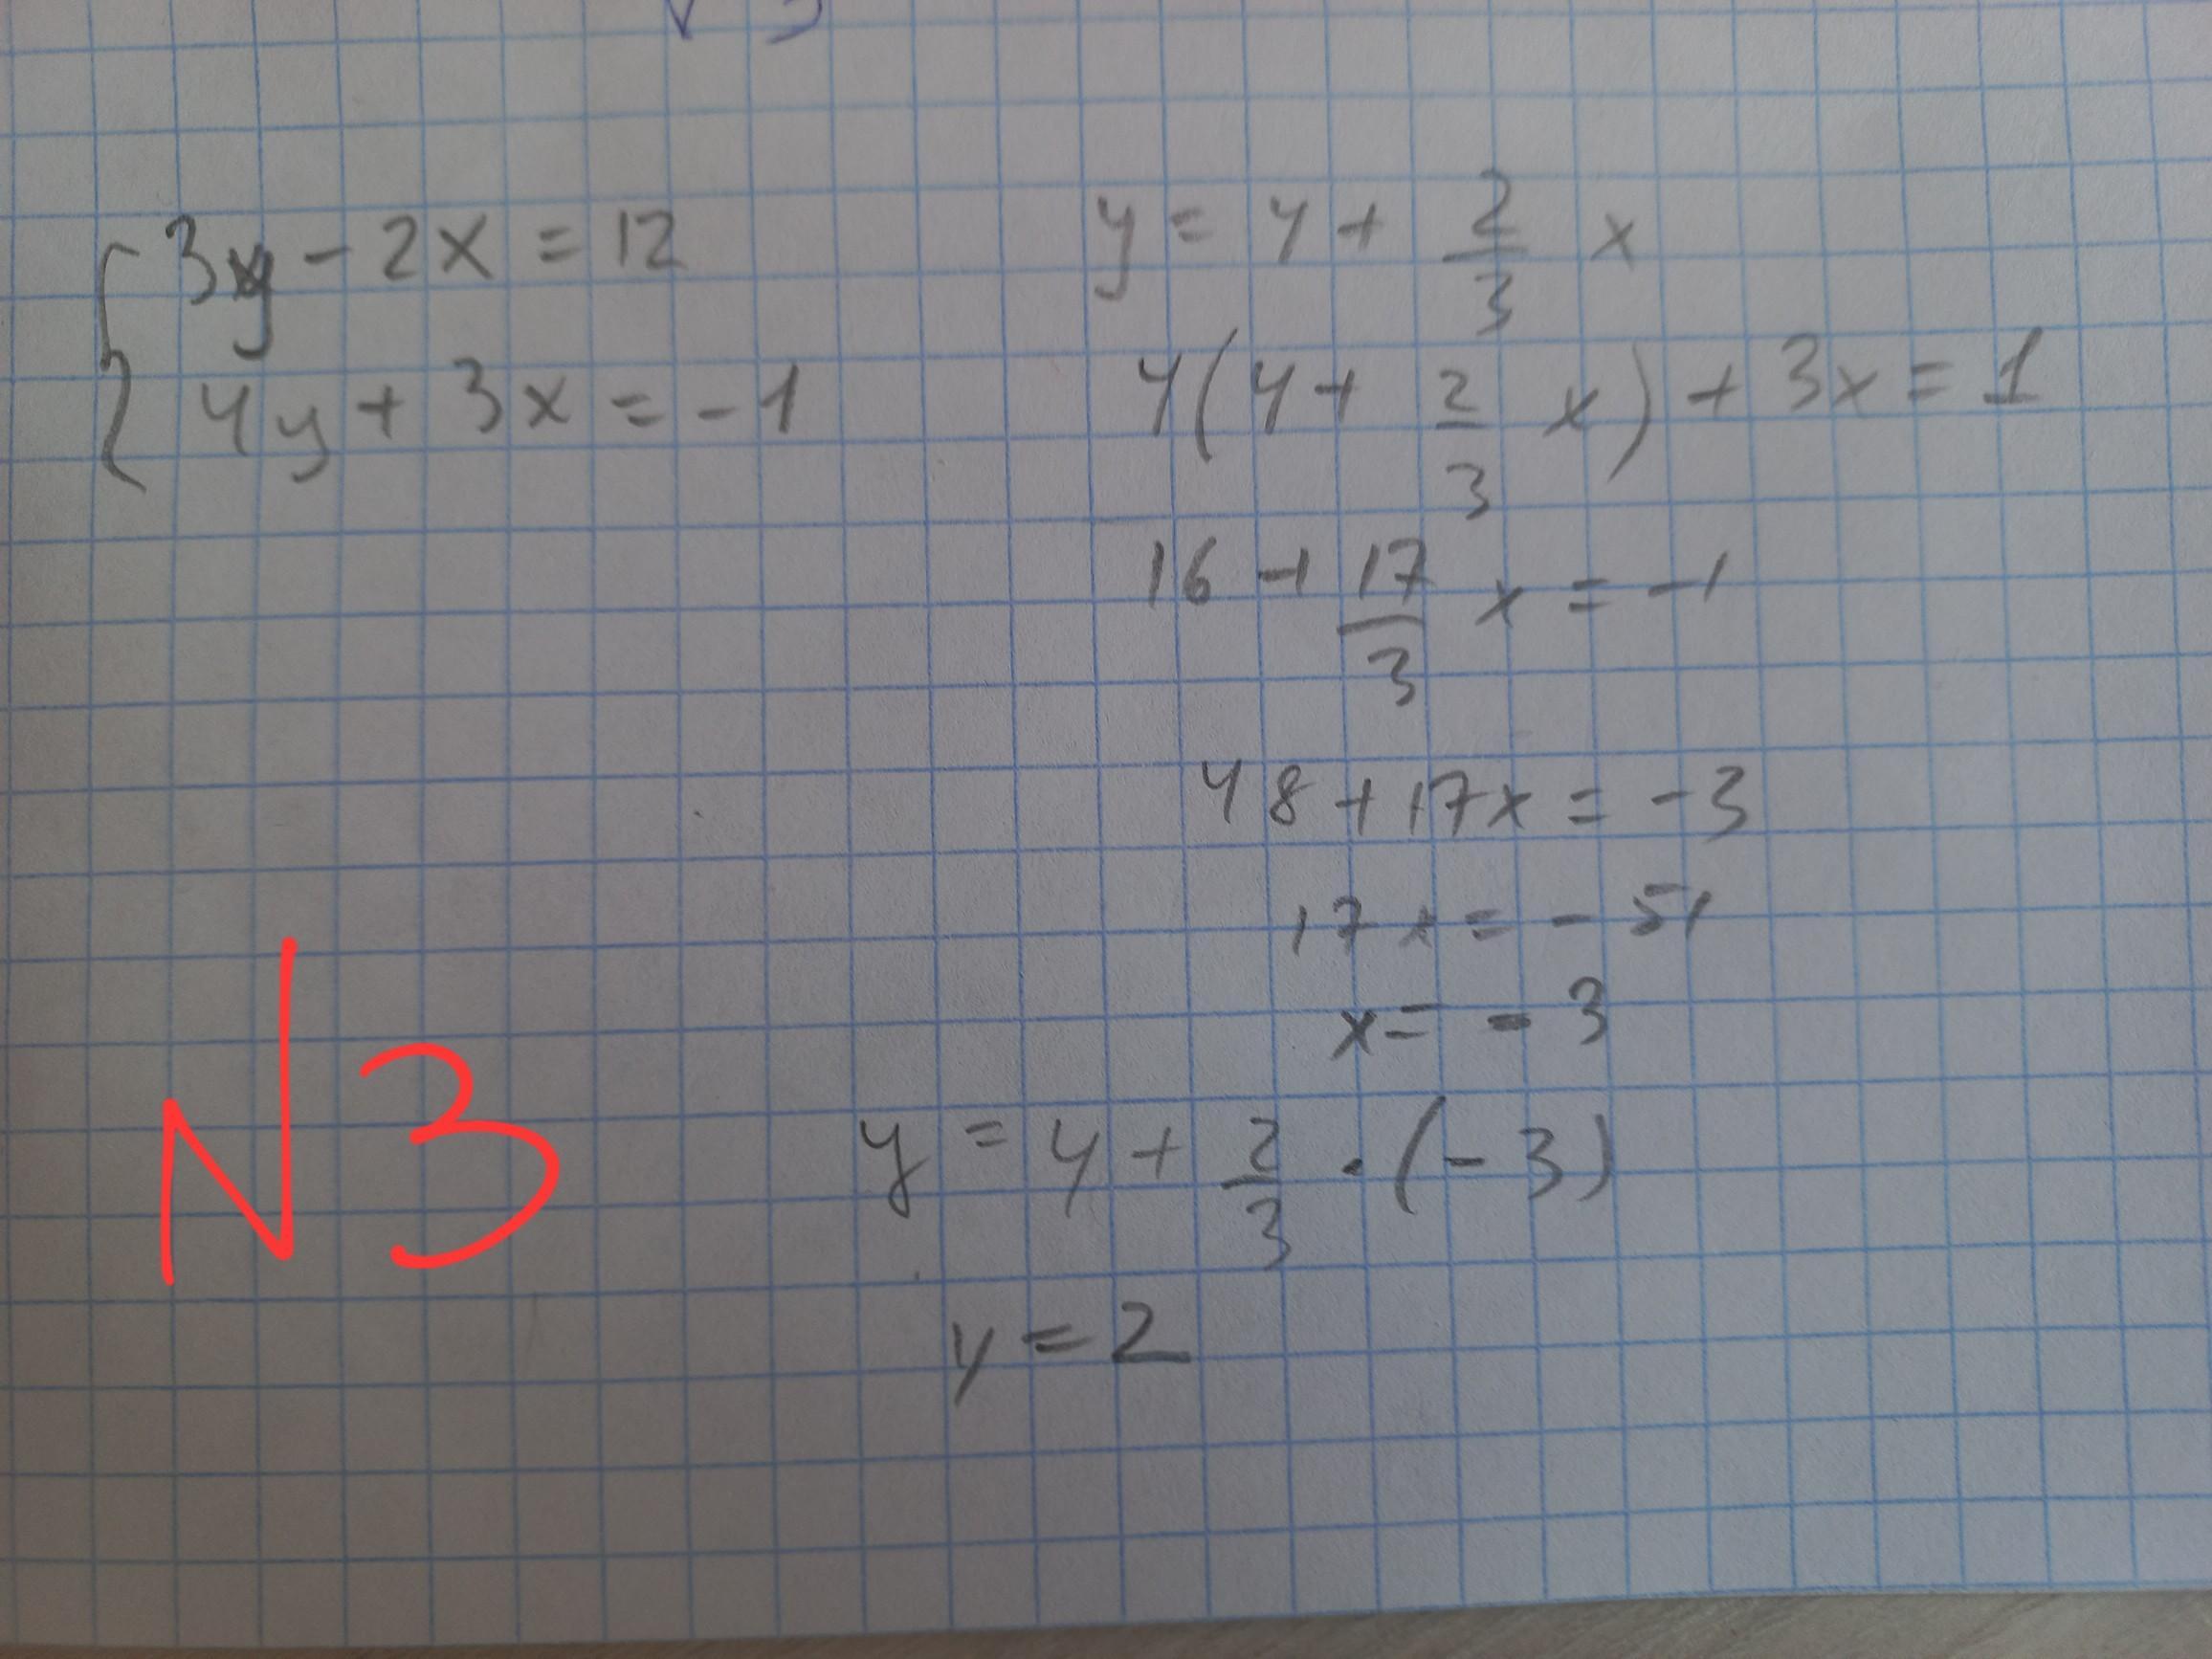 3y - 2x = 12
4y + 3x = -1
y = 4 + 2/3 x
4(4 + 2/3 x) + 3x = 1
16 + 17/3 x = -1
48 + 17x = -3
17x = -51
x = -3
y = 4 + 2/3 · (-3)
y = 2
N3